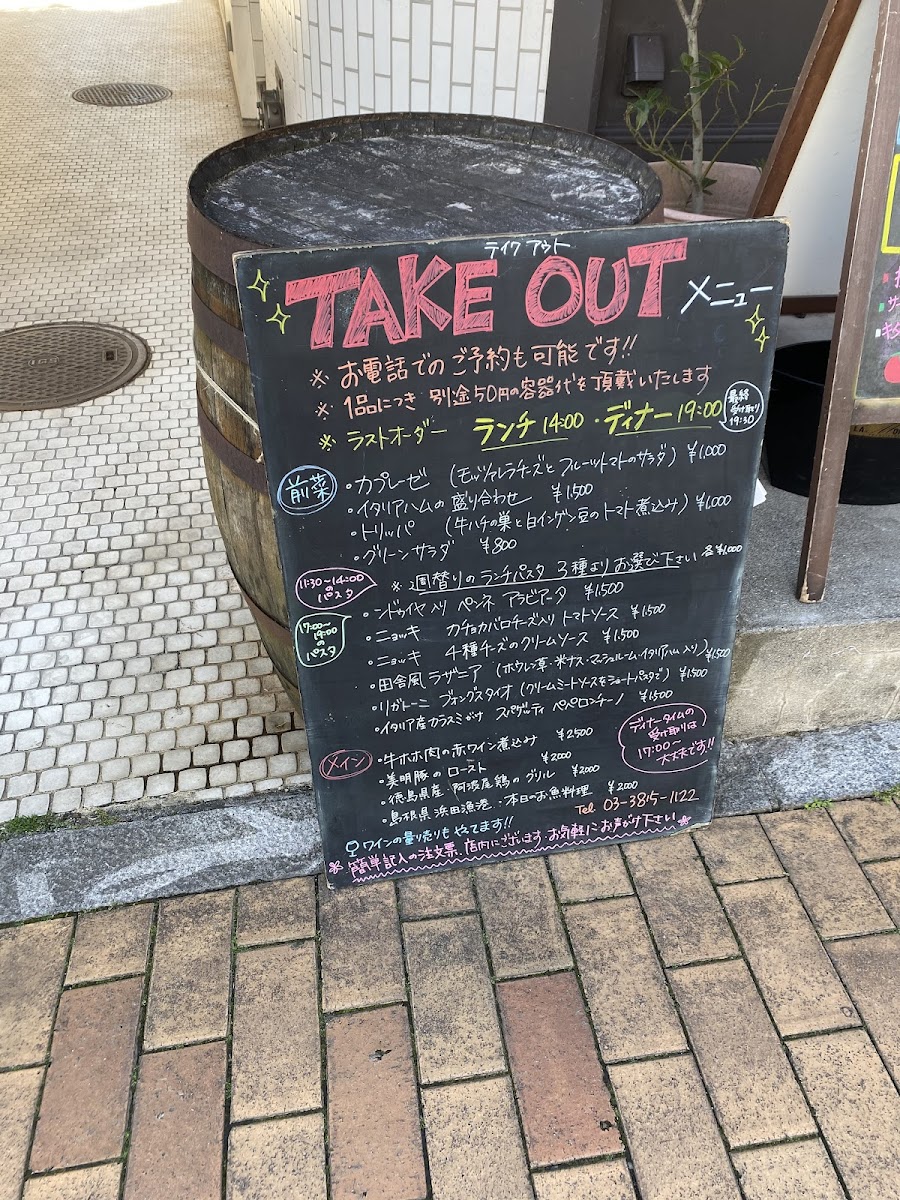 テイクアウト
TAKE OUT メニュー
※ お電話でのご予約も可能です!!
※ 1品につき 別途50円の容器代を頂戴いたします
※ ラストオーダー ランチ 14:00 ・ディナー 19:00
最終
受け取り
19:30
前菜
・カプレーゼ (モッツァレラチーズとフルーツトマトのサラダ) ¥1.000
・イタリアハムの盛り合わせ ¥1.500
・トリッパ (牛ハチの巣と白インゲン豆のトマト煮込み) ¥1.000
・グリーンサラダ ¥800
11:30~14:00
のパスタ
※ 週替りのランチパスタ 3種よりお選び下さい 各¥1.000
17:00~
19:00の
パスタ
・ンドゥイヤ入り ペンネ アラビアータ ¥1.500
・ニョッキ カチョカバロチーズ入り トマトソース ¥1.500
・ニョッキ 4種チーズのクリームソース ¥1.500
・田舎風ラザニア (ホウレン草・米ナス・マッシュルーム・イタリアハム入り) ¥1.500
・リガトーニ ブォングスタイオ (クリームミートソースをショートパスタで) ¥1.500
・イタリア産カラスミがけ スパゲッティ ペペロンチーノ ¥1500
ディナータイムの
受け取りは
17:00~
大丈夫です!!
メイン
・牛ホホ肉の赤ワイン煮込み ¥2500
・美明豚のロースト ¥2000
・徳島県産・阿波尾鶏のグリル ¥2000
・島根県浜田漁港・本日のお魚料理 ¥2000
Tel 03-3815-1122
ワインの量り売りもやってます!!
簡単記入の注文票、店内にございます・お気軽にお声がけ下さい